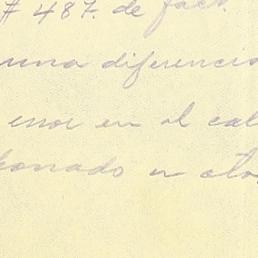 # 487. de fact.
una diferencia
error en el cal
bonado en cta.